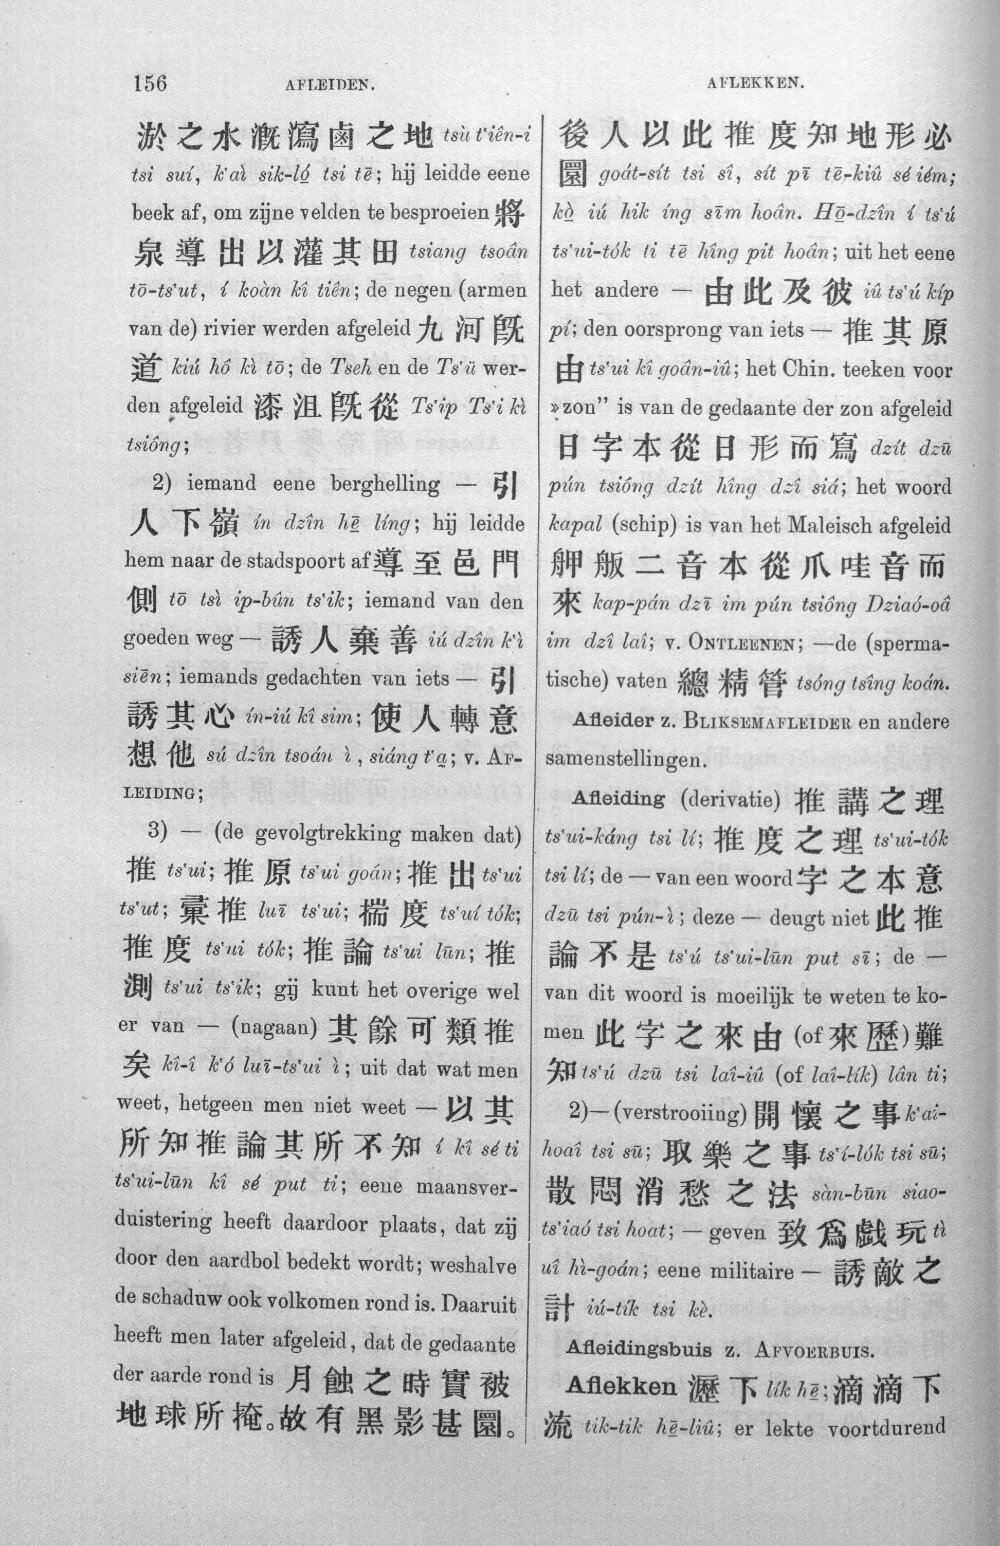 156
AFLEIDEN.
AFLEKKEN.
淤之水漑瀉鹵之地 tsù t‘iên-i
tsi suí, k‘aì sik-ló tsi tē; hij leidde eene
beek af, om zijne velden te besproeien 將
泉導出以灌其田 tsiang tsoân
tō-ts‘ut, í koàn kî tiên; de negen (armen
van de) rivier werden afgeleid 九河旣
道 kiú hô kì tō; de Tseh en de Ts‘ü wer-
den afgeleid 漆沮旣從 Ts‘ip Ts‘i kì
tsiông;
2) iemand eene berghelling — 引
人下嶺 ín dzîn hē líng; hij leidde
hem naar de stadspoort af 導至邑門
側 tō tsì ip-bûn ts‘ik; iemand van den
goeden weg — 誘人棄善 iú dzîn k‘ì
siēn; iemands gedachten van iets — 引
誘其心 ín-iú kî sim; 使人轉意
想他 sú dzîn tsoán ì, siáng t‘a; v. AF-
LEIDING;
3) — (de gevolgtrekking maken dat)
推 ts‘ui; 推原 ts‘ui goân; 推出 ts‘ui
ts‘ut; 彙推 luī ts‘ui; 揣度 ts‘uí tók;
推度 ts‘ui tók; 推論 ts‘ui lūn; 推
測 ts‘ui ts‘ik; gij kunt het overige wel
er van — (nagaan) 其餘可類推
矣 kî-î k‘ó luī-ts‘ui ì; uit dat wat men
weet, hetgeen men niet weet — 以其
所知推論其所不知 í kî sé ti
ts‘ui-lūn kî sé put ti; eene maansver-
duistering heeft daardoor plaats, dat zij
door den aardbol bedekt wordt; weshalve
de schaduw ook volkomen rond is. Daaruit
heeft men later afgeleid, dat de gedaante
der aarde rond is 月蝕之時實被
地球所掩。故有黑影甚圜。
後人以此推度知地形必
圜 goát-sít tsi sî, sít pī tē-kiû sé iém;
kò iú hik íng sīm hoân. Hō-dzîn í ts‘ú
ts‘ui-tók ti tē hîng pit hoân; uit het eene
het andere — 由此及彼 iû ts‘ú kíp
pí; den oorsprong van iets — 推其原
由 ts‘ui kî goân-iû; het Chin. teeken voor
»zon” is van de gedaante der zon afgeleid
日字本從日形而寫 dzít dzū
pún tsiông dzít hîng dzî siá; het woord
kapal (schip) is van het Maleisch afgeleid
舺舨二音本從爪哇音而
來 kap-pán dzī im pún tsiông Dziaó-oâ
im dzî laî; v. ONTLEENEN; —de (sperma-
tische) vaten 總精管 tsóng tsîng koán.
Afleider z. BLIKSEMAFLEIDER en andere
samenstellingen.
Afleiding (derivatie) 推講之理
ts‘ui-káng tsi lí; 推度之理 ts‘ui-tók
tsi lí; de — van een woord 字之本意
dzū tsi pún-ì; deze — deugt niet 此推
論不是 ts‘ú ts‘ui-lūn put sī; de —
van dit woord is moeilijk te weten te ko-
men 此字之來由 (of 來歷) 難
知 ts‘ú dzū tsi laî-iû (of laî-lík) lân ti;
2)— (verstrooiing) 開懷之事 k‘ai-
hoaî tsi sū; 取樂之事 ts‘í-lók tsi sū;
散悶消愁之法 sàn-būn siao-
ts‘iaó tsi hoat; — geven 致爲戲玩 tì
uî hì-goán; eene militaire — 誘敵之
計 iú-tík tsi kè.
Afleidingsbuis z. AFVOERBUIS.
Aflekken 瀝下 lík hē; 滴滴下
流 tik-tik hē-liû; er lekte voortdurend